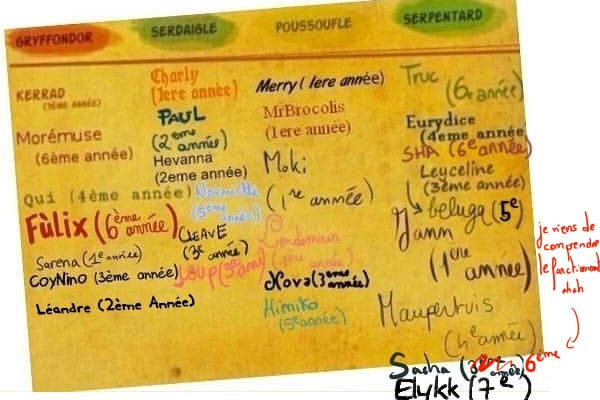 GRYFFONDOR
SERDAIGLE
POUSSOUFLE
SERPENTARD
KERRAD
(3ème année)
Morémuse
(6ème année)
Qui (4ème année)
Fùlix (6ème année)
Sarena (1e année)
CoyNino (3ème année)
Léandre (2ème Année)
Charly
(1ere année)
PAUL
(2eme
année)
Hevanna
(2eme année)
(5ème année)
CLEAVE
(3e
année)
LOUP (3e année)
Merry (1ere année)
MrBrocolis
(1ere année)
Moki
(1re année)
Londomain
(1ère année)
Nova (3eme année)
Himiko
(5e année)
Truc
(6e année)
Eurydice
(4eme année
SHA (6e année)
Leyceline
(3ème année)
→ beluga (5e
Yann
(1ere
année)
Maupertuis
(4e année)
Sacha (3ème année) 6ème
Elykk (7e)
je viens de
comprendre
le fonctionnement
ahah